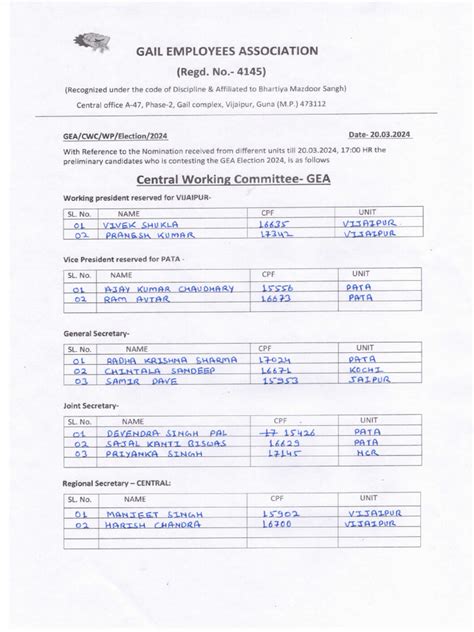 GAIL EMPLOYEES ASSOCIATION
(Regd. No.- 4145)
(Recognized under the code of Discipline & Affiliated to Bhartiya Mazdoor Sangh)
Central office A-47, Phase-2, Gail complex, Vijaipur, Guna (M.P.) 473112
GEA/CWC/WP/Election/2024 Date- 20.03.2024
With Reference to the Nomination received from different units till 20.03.2024, 17:00 HR the
preliminary candidates who is contesting the GEA Election 2024, is as follows
Central Working Committee- GEA
Working president reserved for VIJAIPUR-
SL. No. NAME CPF UNIT
01 VIVEK SHUKLA 16635 VIJAIPUR
02 PRANESH KUMAR 17342 VIJAIPUR
Vice President reserved for PATA -
SL. No. NAME CPF UNIT
01 AJAY KUMAR CHAUDHARY 15556 PATA
02 RAM AVTAR 16673 PATA
General Secretary-
SL. No. NAME CPF UNIT
01 RADHA KRISHNA SHARMA 17024 PATA
02 CHINTALA SANDEEP 16671 KOCHI
03 SAMIR DAVE 15953 JAIPUR
Joint Secretary-
SL. No. NAME CPF UNIT
01 DEVENDRA SINGH PAL 17 15426 PATA
02 SAJAL KANTI BISWAS 16629 PATA
03 PRIYANKA SINGH 17145 NCR
Regional Secretary – CENTRAL:
SL. No. NAME CPF UNIT
01 MANJEET SINGH 15902 VIJAIPUR
02 HARISH CHANDRA 16700 VIJAIPUR